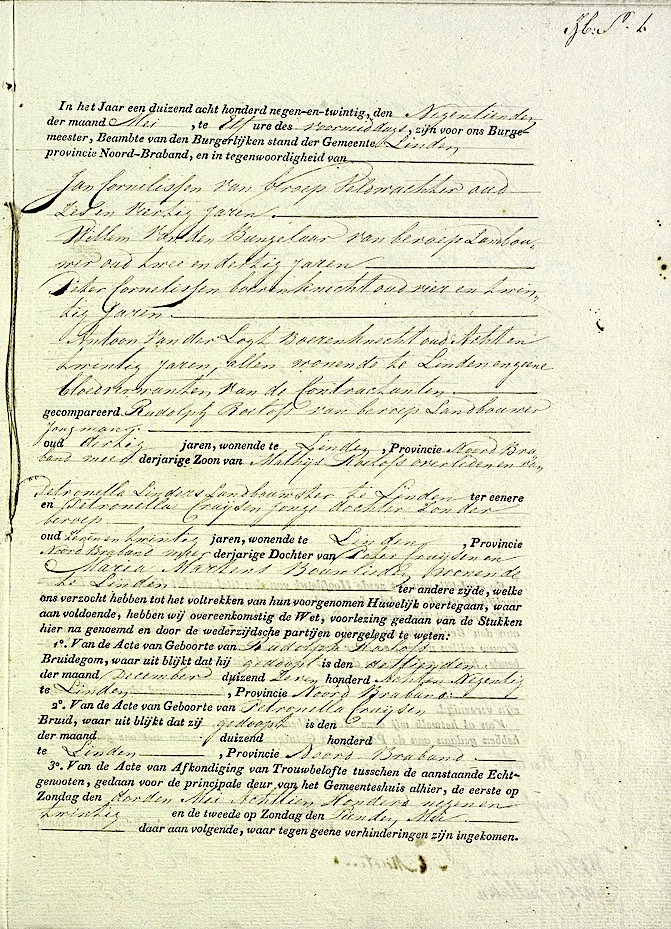 In het Jaar een duizend acht honderd negen-en-twintig, den Negentienden
der maand Mei, te Elf ure des voormiddags, zijn voor ons Burge-
meester, Beambte van den Burgerlijken stand der Gemeente Linden
provincie Noord-Braband, en in tegenwoordigheid van
Jan Cornelissen van beroep Veldwachter oud
Zes en Veertig Jaren.
Willem Van den Bungelaar van beroep Landbou-
wer oud twee en dertig Jaren
Peter Cornelissen boerenknecht oud vier en twin-
tig Jaren
Antoon Van der Logt Boerenknecht oud Acht en
twintig Jaren, allen wonende te Linden en geene
bloedverwanten van de Contractanten
gecompareerd Rudolph Roelofs van beroep Landbouwer
Jongman
oud dertig jaren, wonende te Linden, Provincie Noord Bra-
band meerderjarige Zoon van Mathijs Roelofs overleden en van
Petronella Linders Landbouwster te Linden ter eenere
en Petronella Cruijsen Jonge dochter zonder
beroep
oud Zeven en twintig jaren, wonende te Linden, Provincie
Noord Braband meerderjarige Dochter van Peter Cruijsen en
Maria Martens Bouwlieden wonende
te Linden ter andere zijde, welke
ons verzocht hebben tot het voltrekken van hun voorgenomen Huwelijk overtegaan, waar
aan voldoende, hebben wij overeenkomstig de Wet, voorlezing gedaan van de Stukken
hier na genoemd en door de wederzijdsche partijen overgelegd te weten:
1º. Van de Acte van Geboorte van Rudolph Roelofs
Bruidegom, waar uit blijkt dat hij gedoopt is den dertienden
der maand December duizend Zeven honderd Acht en Negentig
te Linden, Provincie Noord Braband
2º. Van de Acte van Geboorte van Petronella Cruijsen
Bruid, waar uit blijkt dat zij gedoopt is den
der maand duizend honderd
te Linden, Provincie Noord Braband
3º. Van de Acte van Afkondiging van Trouwbelofte tusschen de aanstaande Echt-
genooten, gedaan voor de principale deur van het Gemeenteshuis alhier, de eerste op
Zondag den derden Mei Achttien Honderd negen en
twintig en de tweede op Zondag den Tienden Mei
daar aan volgende, waar tegen geene verhinderingen zijn ingekomen.